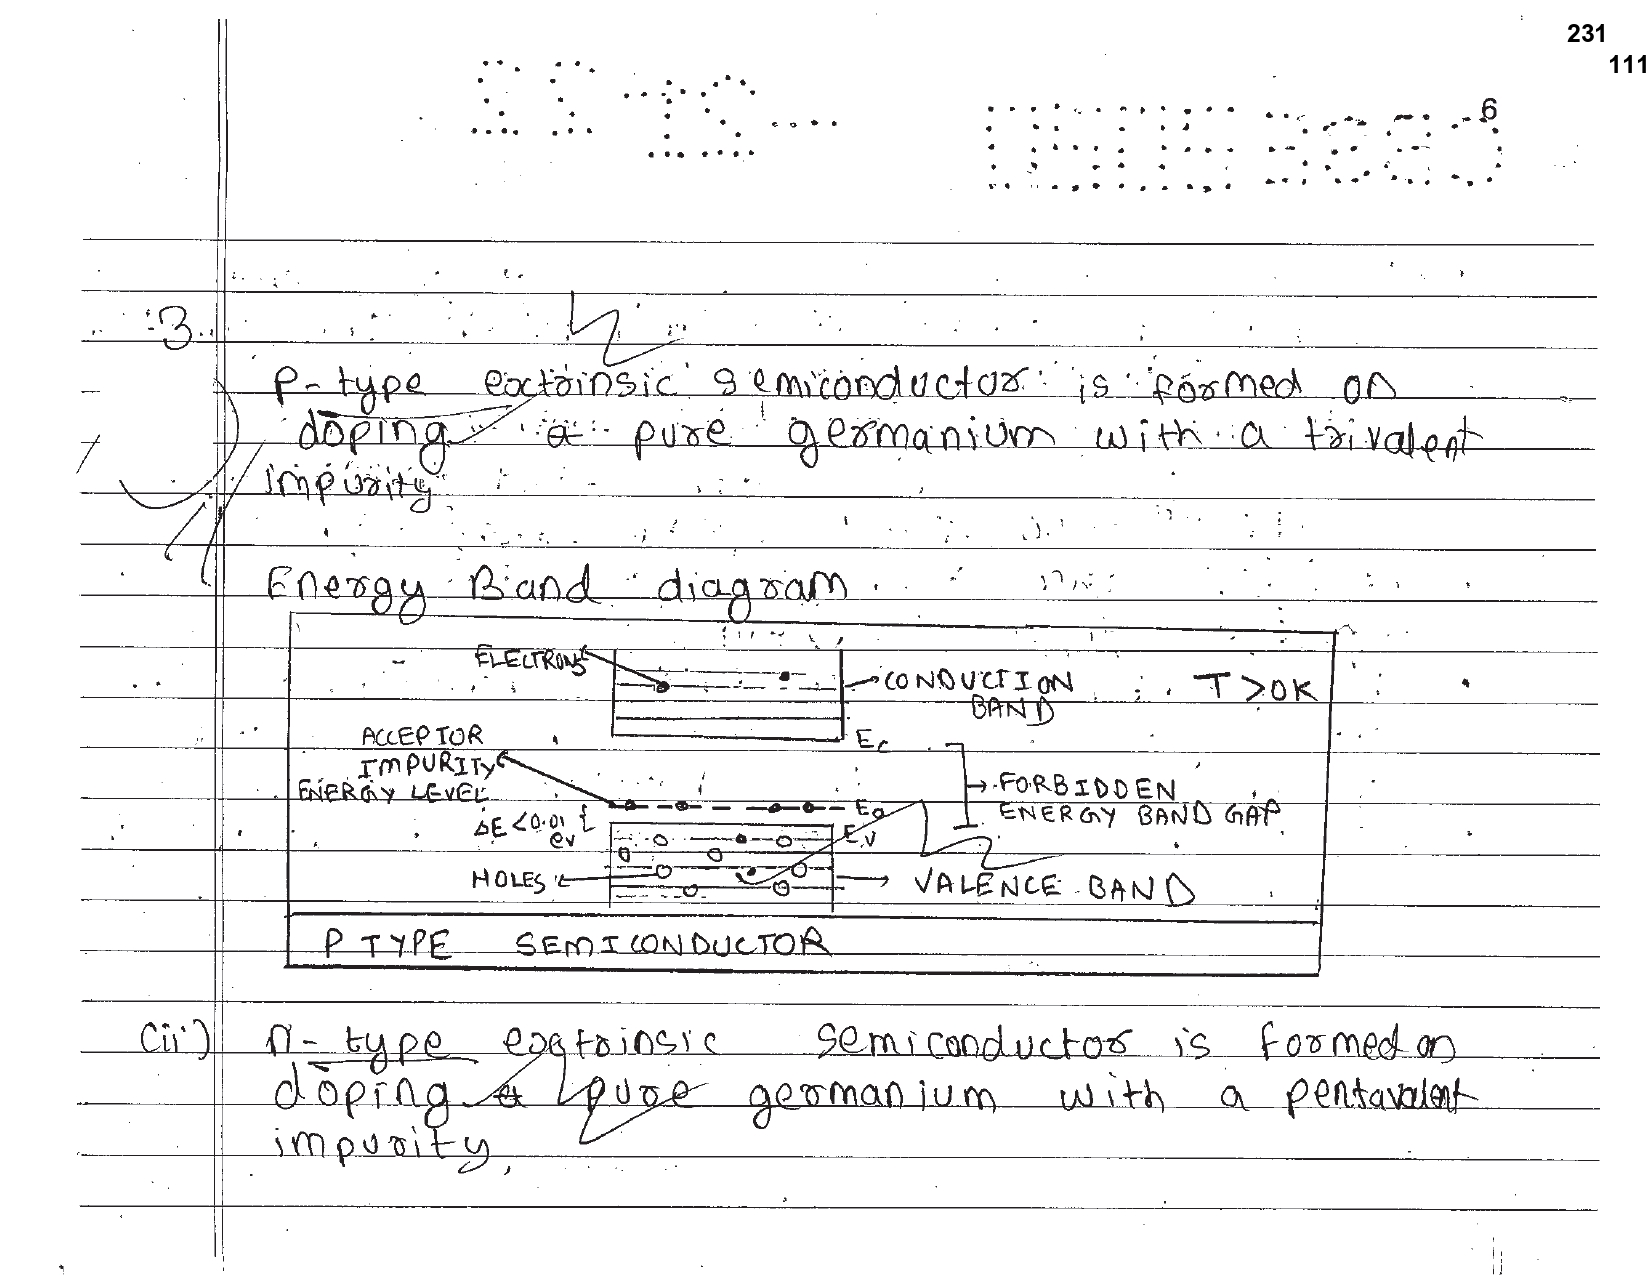 231
111
6
3.
P-type extrinsic semiconductor is formed on
doping a pure germanium with a trivalent
impurity.
Energy Band diagram.
ELECTRONS
CONDUCTION
BAND
T>0K
ACCEPTOR
IMPURITY
ENERGY LEVEL
Ec
FORBIDDEN
ENERGY BAND GAP
Ea
ΔE <0.01
ev
Ev
HOLES
VALENCE BAND
P TYPE SEMICONDUCTOR
(ii) n-type extrinsic semiconductor is formed on
doping a pure germanium with a pentavalent
impurity.